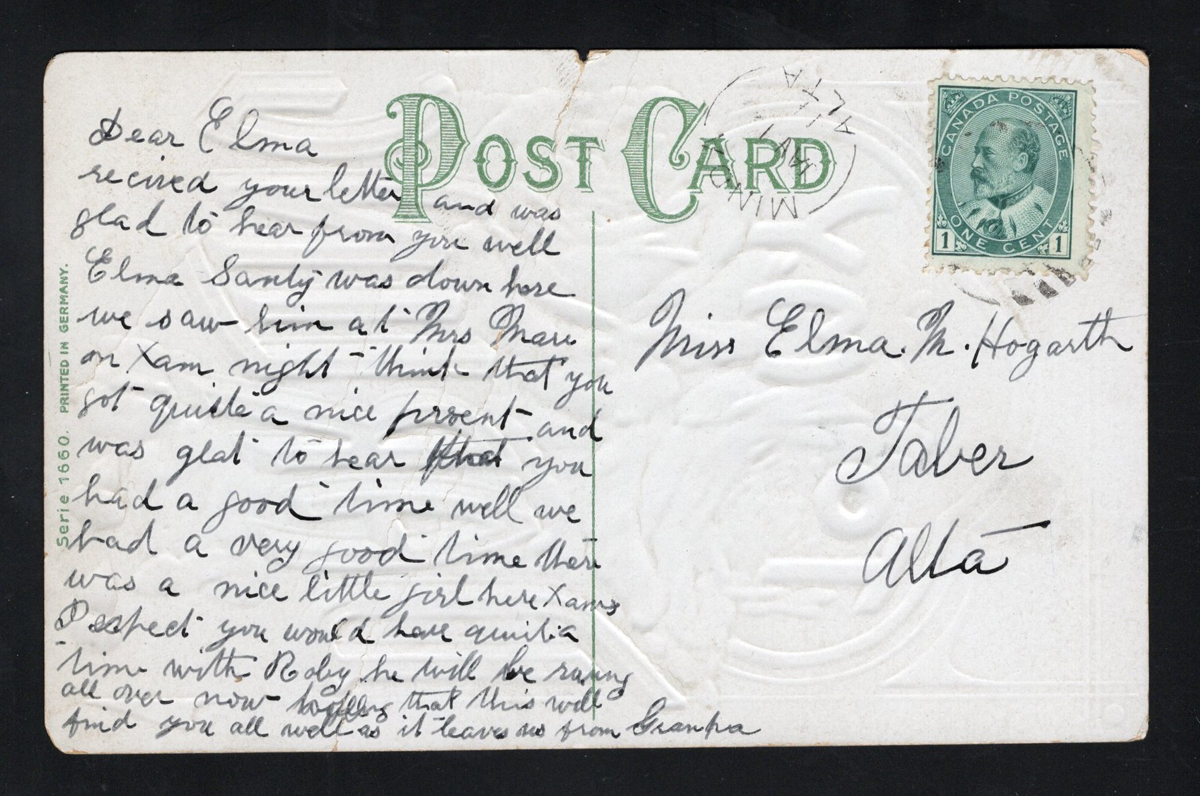 POST CARD
MINDA
ALTA
CANADA POSTAGE
ONE CENT
1 1
Dear Elma
recived your letter and was
glad to hear from you well
Elma Santy was down here
we saw him at Mrs Mare
on Xam night think that you
got quite a nice prsent and
was glat to hear that you
had a good time well we
had a very good time there
was a nice little girl here Xams
I expect you would have quit a
time with Roby he will be runing
all over now hopping that this will
find you all well as it leaves us from Granpa
Miss Elma. M. Hogarth
Taber
Alta
Serie 1660. PRINTED IN GERMANY.